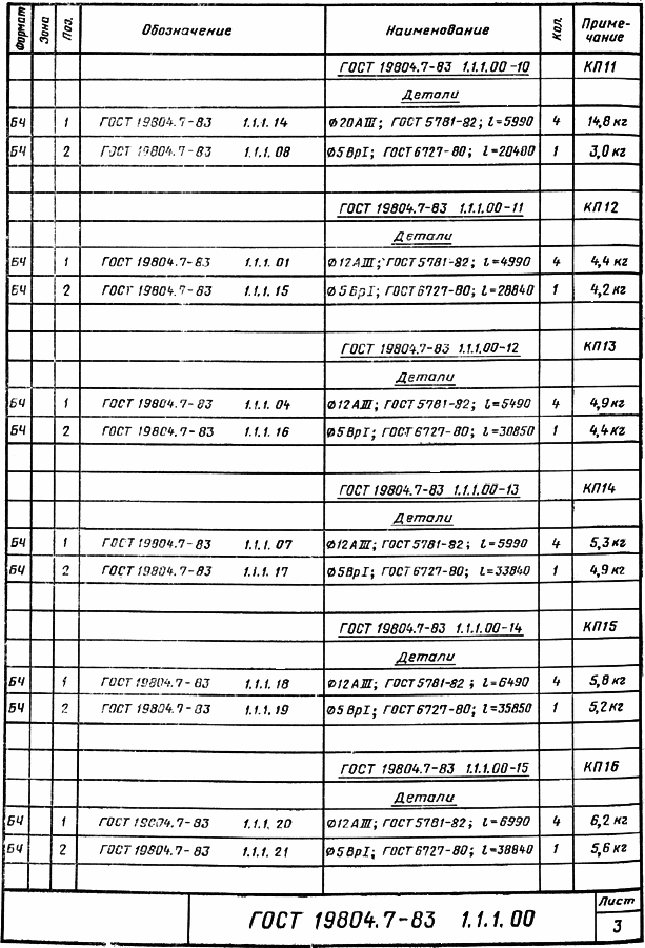 Формат Зона Поз. Обозначение Наименование Кол. Приме-
чание
ГОСТ 19804.7-83 1.1.1.00-10 КП11
Детали
БЧ 1 ГОСТ 19804.7-83 1.1.1. 14 Ø20АIII; ГОСТ 5781-82; l=5990 4 14,8 кг
БЧ 2 ГОСТ 19804.7-83 1.1.1. 08 Ø5ВрI; ГОСТ 6727-80; l=20400 1 3,0 кг
ГОСТ 19804.7-83 1.1.1.00-11 КП12
Детали
БЧ 1 ГОСТ 19804.7-83 1.1.1. 01 Ø12АIII; ГОСТ 5781-82; l=4990 4 4,4 кг
БЧ 2 ГОСТ 19804.7-83 1.1.1. 15 Ø5ВрI; ГОСТ 6727-80; l=28840 1 4,2 кг
ГОСТ 19804.7-83 1.1.1.00-12 КП13
Детали
БЧ 1 ГОСТ 19804.7-83 1.1.1. 04 Ø12АIII; ГОСТ 5781-82; l=5490 4 4,9 кг
БЧ 2 ГОСТ 19804.7-83 1.1.1. 16 Ø5ВрI; ГОСТ 6727-80; l=30850 1 4,4 кг
ГОСТ 19804.7-83 1.1.1.00-13 КП14
Детали
БЧ 1 ГОСТ 19804.7-83 1.1.1. 07 Ø12АIII; ГОСТ 5781-82; l=5990 4 5,3 кг
БЧ 2 ГОСТ 19804.7-83 1.1.1. 17 Ø5ВрI; ГОСТ 6727-80; l=33840 1 4,9 кг
ГОСТ 19804.7-83 1.1.1.00-14 КП15
Детали
БЧ 1 ГОСТ 19804.7-83 1.1.1. 18 Ø12АIII; ГОСТ 5781-82; l=6490 4 5,8 кг
БЧ 2 ГОСТ 19804.7-83 1.1.1. 19 Ø5ВрI; ГОСТ 6727-80; l=35850 1 5,2 кг
ГОСТ 19804.7-83 1.1.1.00-15 КП16
Детали
БЧ 1 ГОСТ 19804.7-83 1.1.1. 20 Ø12АIII; ГОСТ 5781-82; l=6990 4 6,2 кг
БЧ 2 ГОСТ 19804.7-83 1.1.1. 21 Ø5ВрI; ГОСТ 6727-80; l=38840 1 5,6 кг
ГОСТ 19804.7-83 1.1.1.00 Лист
3